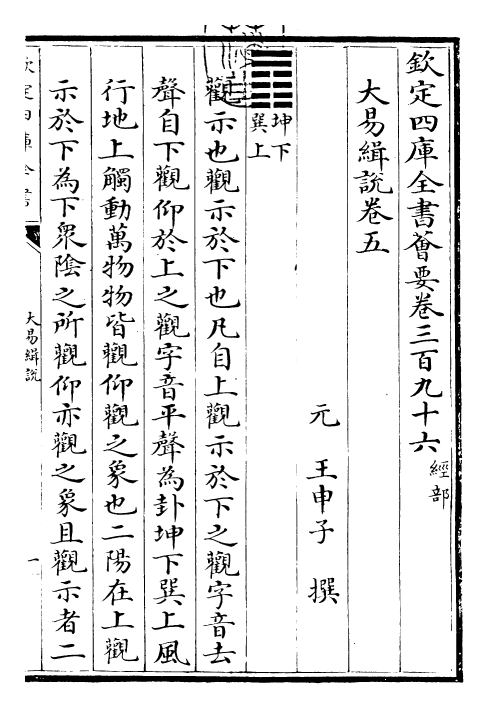 欽定四庫全書薈要卷三百九十六經部
大易緝說卷五
元 王申子 撰
坤下
巽上
觀示也觀示於下也凡自上觀示於下之觀字音去
聲自下觀仰於上之觀字音平聲為卦坤下巽上風
行地上觸動萬物物皆觀仰觀之象也二陽在上觀
示於下為下衆陰之所觀仰亦觀之象且觀示者二
欽定四庫全書
大易緝說
一